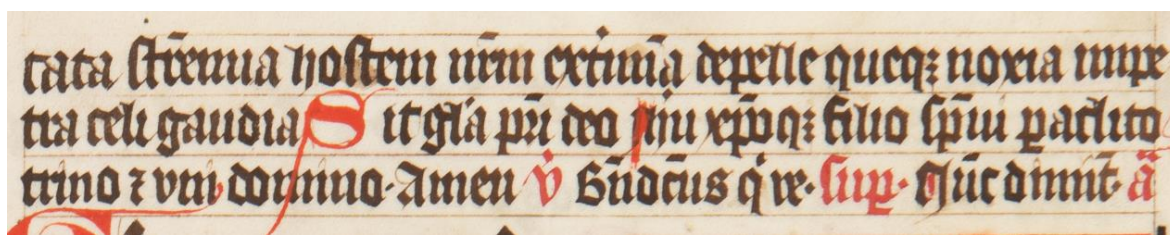 tata strēnua hostem nr̄m extīmā depelle queqꝫ noxia impe
tra celi gaudia Sit gl̄a pr̄i deo ihū xp̄oqꝫ filio sp̄ui paclito
trino ⁊ vni domino· Amen v̇ Bn̄dc̄us q̇ ve· sup̱· Nūc dimit̄t· a̅